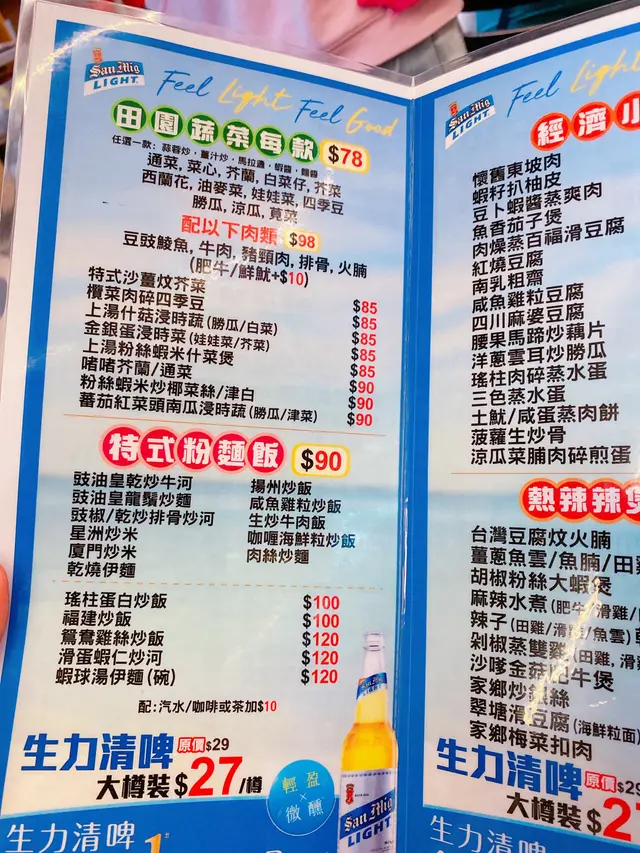 San Mig
LIGHT
Feel Light Feel Good
田園蔬菜每款 $78
任選一款: 蒜蓉炒，薑汁炒，馬拉盞，蝦醬，麵醬
通菜, 菜心, 芥蘭, 白菜仔, 芥菜
西蘭花, 油麥菜, 娃娃菜, 四季豆
勝瓜, 涼瓜, 莧菜
配以下肉類 $98
豆豉鯪魚, 牛肉, 豬頸肉, 排骨, 火腩
(肥牛/鮮魷+$10)
特式沙薑炆芥菜 $85
欖菜肉碎四季豆 $85
上湯什菇浸時蔬 (勝瓜/白菜) $85
金銀蛋浸時菜 (娃娃菜/芥菜) $85
上湯粉絲蝦米什菜煲 $85
啫啫芥蘭/通菜 $90
粉絲蝦米炒椰菜絲/津白 $90
蕃茄紅菜頭南瓜浸時蔬 (勝瓜/津菜) $90
特式粉麵飯 $90
豉油皇乾炒牛河
豉油皇龍鬚炒麵
豉椒/乾炒排骨炒河
星洲炒米
廈門炒米
乾燒伊麵
揚州炒飯
咸魚雞粒炒飯
生炒牛肉飯
咖喱海鮮粒炒飯
肉絲炒麵
瑤柱蛋白炒飯 $100
福建炒飯 $100
鴛鴦雞絲炒飯 $120
滑蛋蝦仁炒河 $120
蝦球湯伊麵 (碗) $120
配: 汽水/咖啡或茶加$10
生力清啤 原價$29
大樽裝 $27/樽
輕盈
×
微醺
San Mig
LIGHT
生力清啤
San Mig
LIGHT
Feel Light
經濟小
懷舊東坡肉
蝦籽扒柚皮
豆卜蝦醬蒸爽肉
魚香茄子煲
肉燥蒸百福滑豆腐
紅燒豆腐
南乳粗齋
咸魚雞粒豆腐
四川麻婆豆腐
腰果馬蹄炒藕片
洋蔥雲耳炒勝瓜
瑤柱肉碎蒸水蛋
三色蒸水蛋
土魷/咸蛋蒸肉餅
菠蘿生炒骨
涼瓜菜脯肉碎煎蛋
熱辣辣煲
台灣豆腐炆火腩
薑蔥魚雲/魚腩/田
胡椒粉絲大蝦煲
麻辣水煮 (肥牛/滑雞/
辣子 (田雞/滑雞/魚雲)
剁椒蒸雙雞 (田雞, 滑
沙嗲金菇肥牛煲
家鄉炒絲
翠塘滑豆腐 (海鮮粒面)
家鄉梅菜扣肉
生力清啤 原價$29
大樽裝 $2
生力清啤